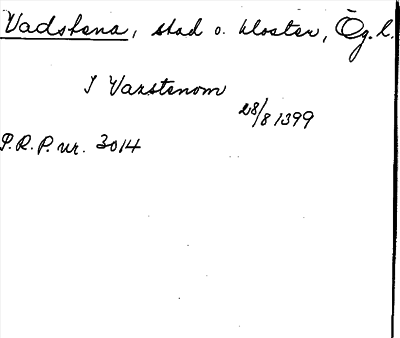 Vadstena, stad o. kloster, Ög. l.
I Vazstenom
28/8 1399
P.R.P. nr. 3014